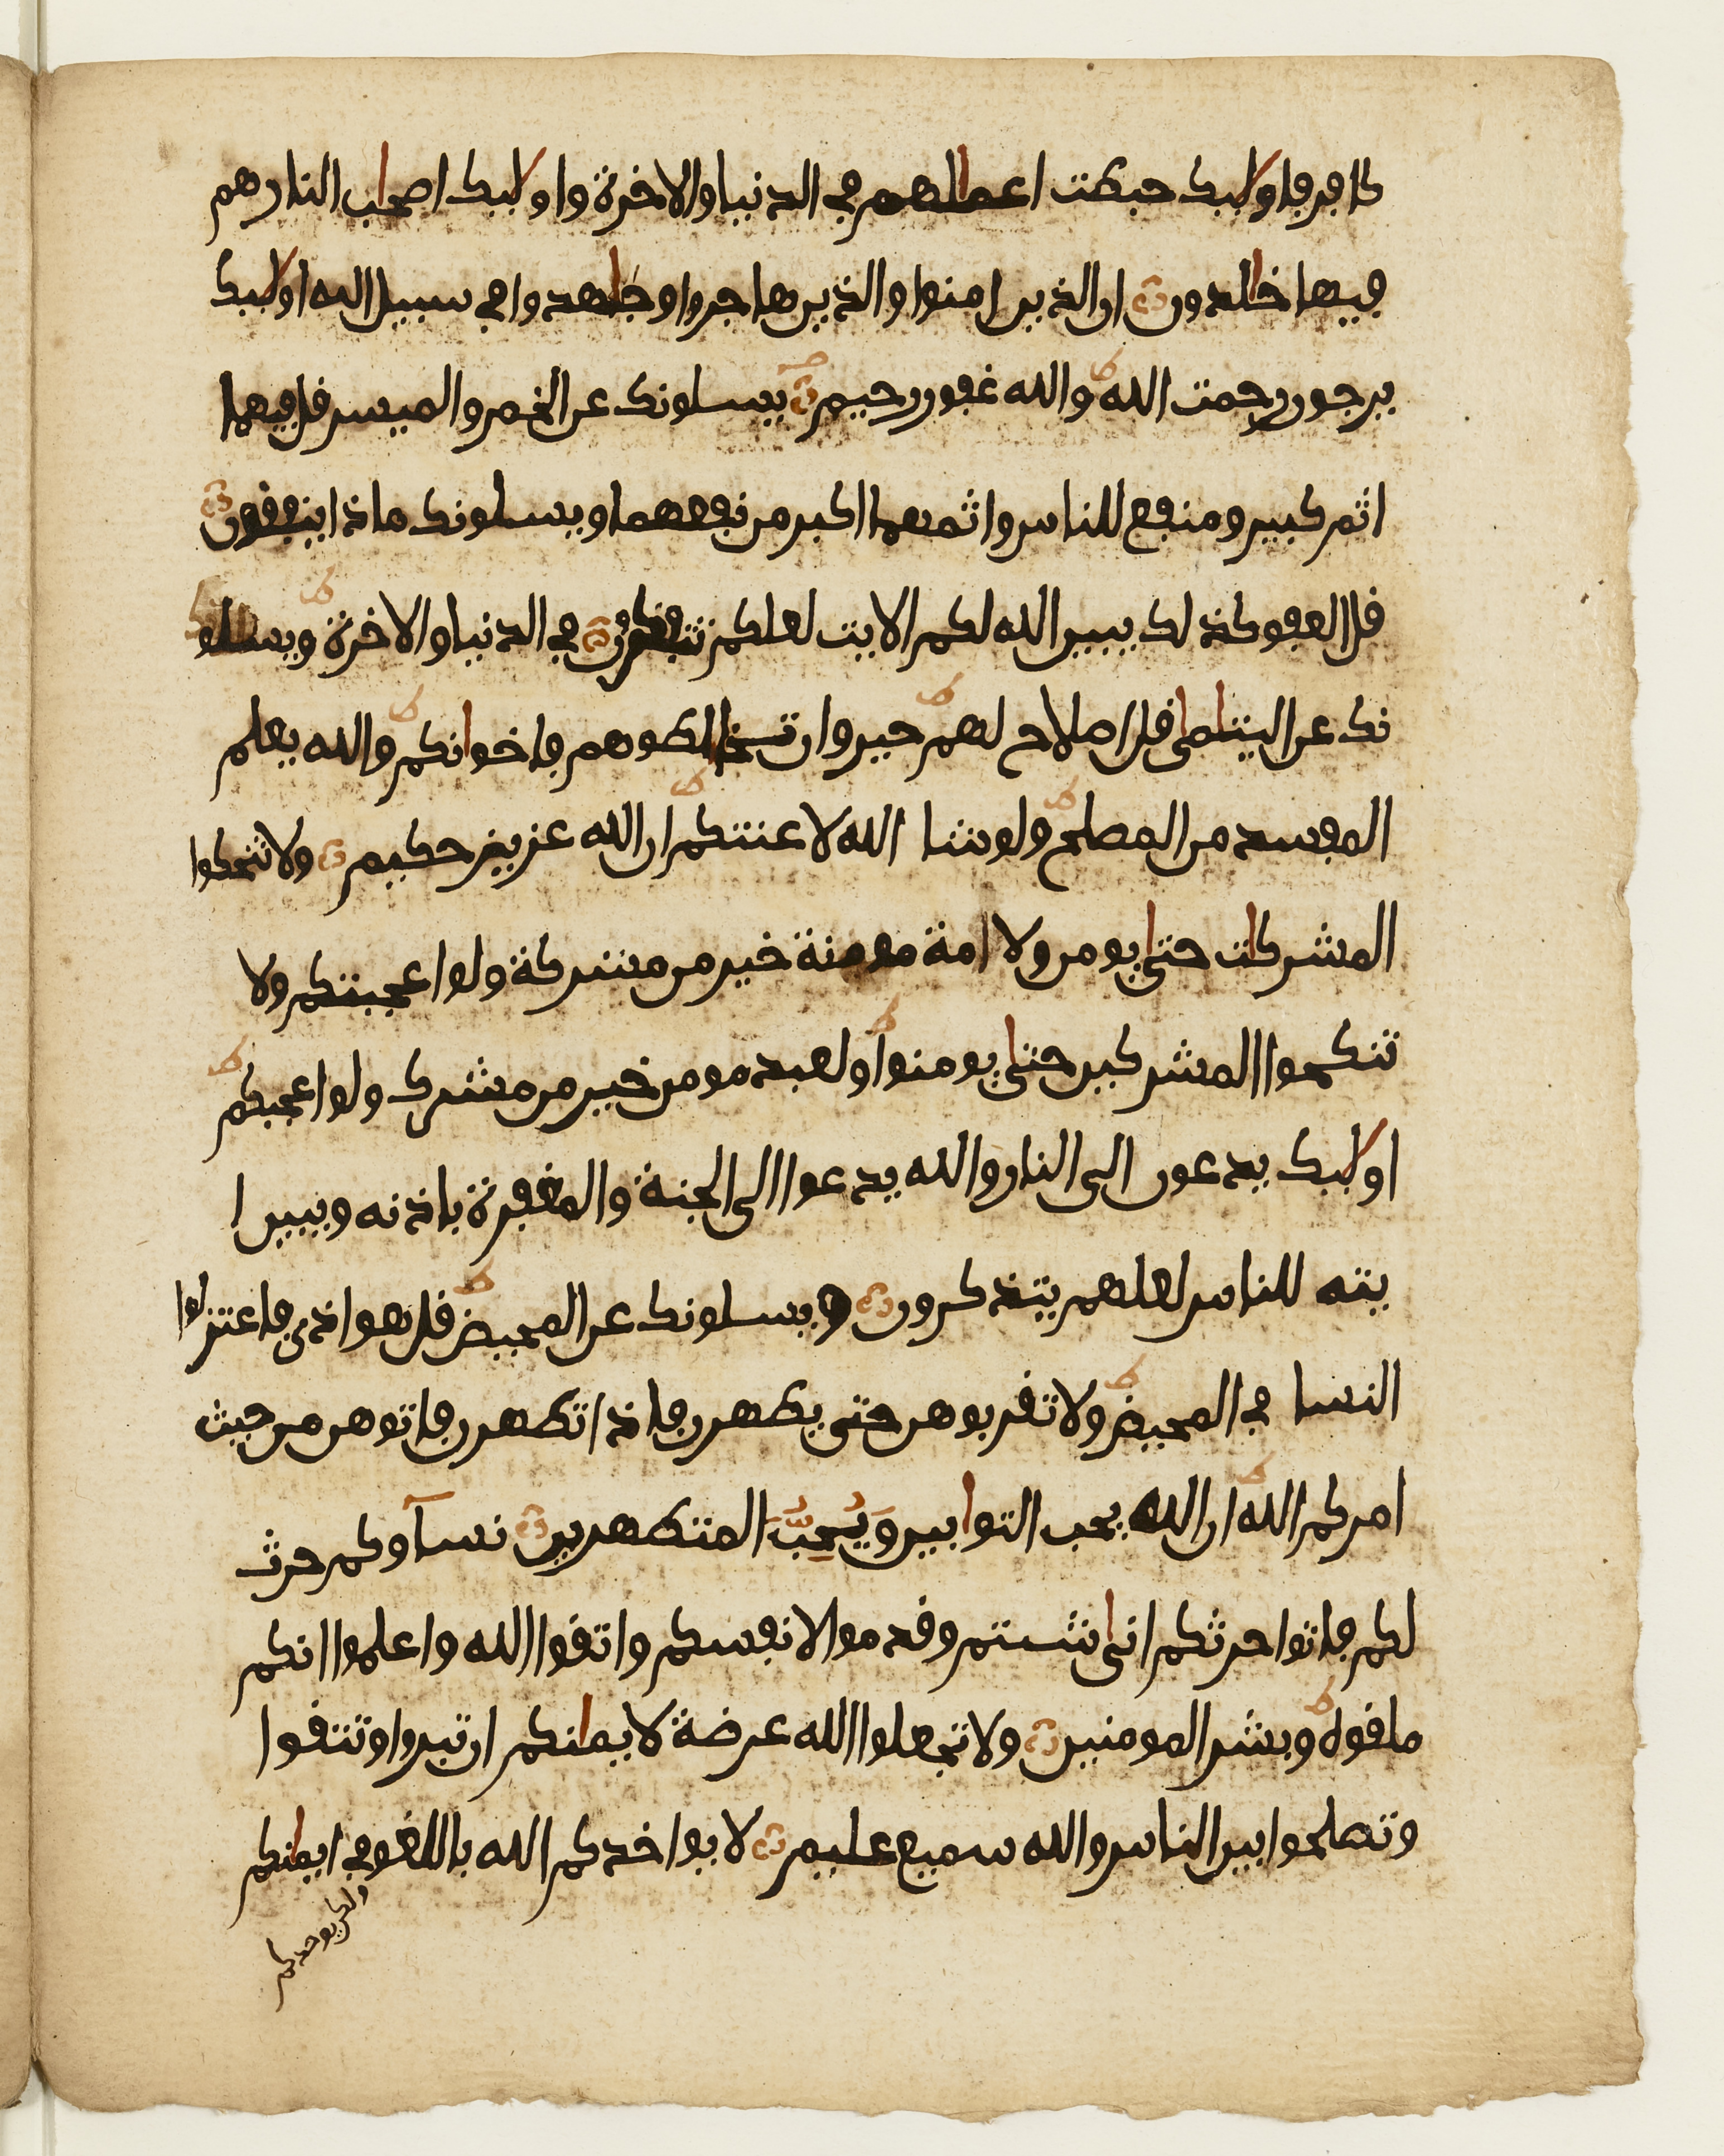 كافر فاولئك حبطت اعمالهم في الدنيا والاخرة واولئك اصحاب النار هم
فيها خالدون ان الذين امنوا والذين هاجروا وجاهدوا في سبيل الله اولئك
يرجون رحمت الله والله غفور رحيم يسلونك عن الخمر والميسر قل فيهما
اثم كبير ومنفع للناس واثمهما اكبر من نفعهما ويسلونك ماذا ينفقون
قل العفو كذلك يبين الله لكم الايت لعلكم تتفكرون في الدنيا والاخرة ويسلو
نك عن اليتامى قل اصلاح لهم خير وان تخالطوهم فاخوانكم والله يعلم
المفسد من المصلح ولو شا الله لاعنتكم ان الله عزيز حكيم ولا تنكحوا
المشركات حتى يومن ولامة مومنة خير من مشركة ولو اعجبتكم ولا
تنكحوا المشركين حتى يومنوا ولعبد مومن خير من مشرك ولو اعجبكم
اولئك يدعون الى النار والله يدعوا الى الجنة والمغفرة باذنه ويبين ا
يته للناس لعلهم يتذكرون ويسلونك عن المحيض قل هو اذى فاعتزلوا
النسا في المحيض ولا تقربوهن حتى يطهرن فاذا تطهرن فاتوهن من حيث
امركم الله ان الله يحب التوابين وَيُحِبُّ المتطهرين نسآوكم حرث
لكم فاتوا حرثكم انى شئتم وقدموا لانفسكم واتقوا الله واعلموا انكم
ملقوه وبشر المومنين ولا تجعلوا الله عرضة لايمانكم ان تبروا وتتقوا
وتصلحوا بين الناس والله سميع عليم لا يواخذكم الله باللغو في ايمانكم
ولكن يواخذكم